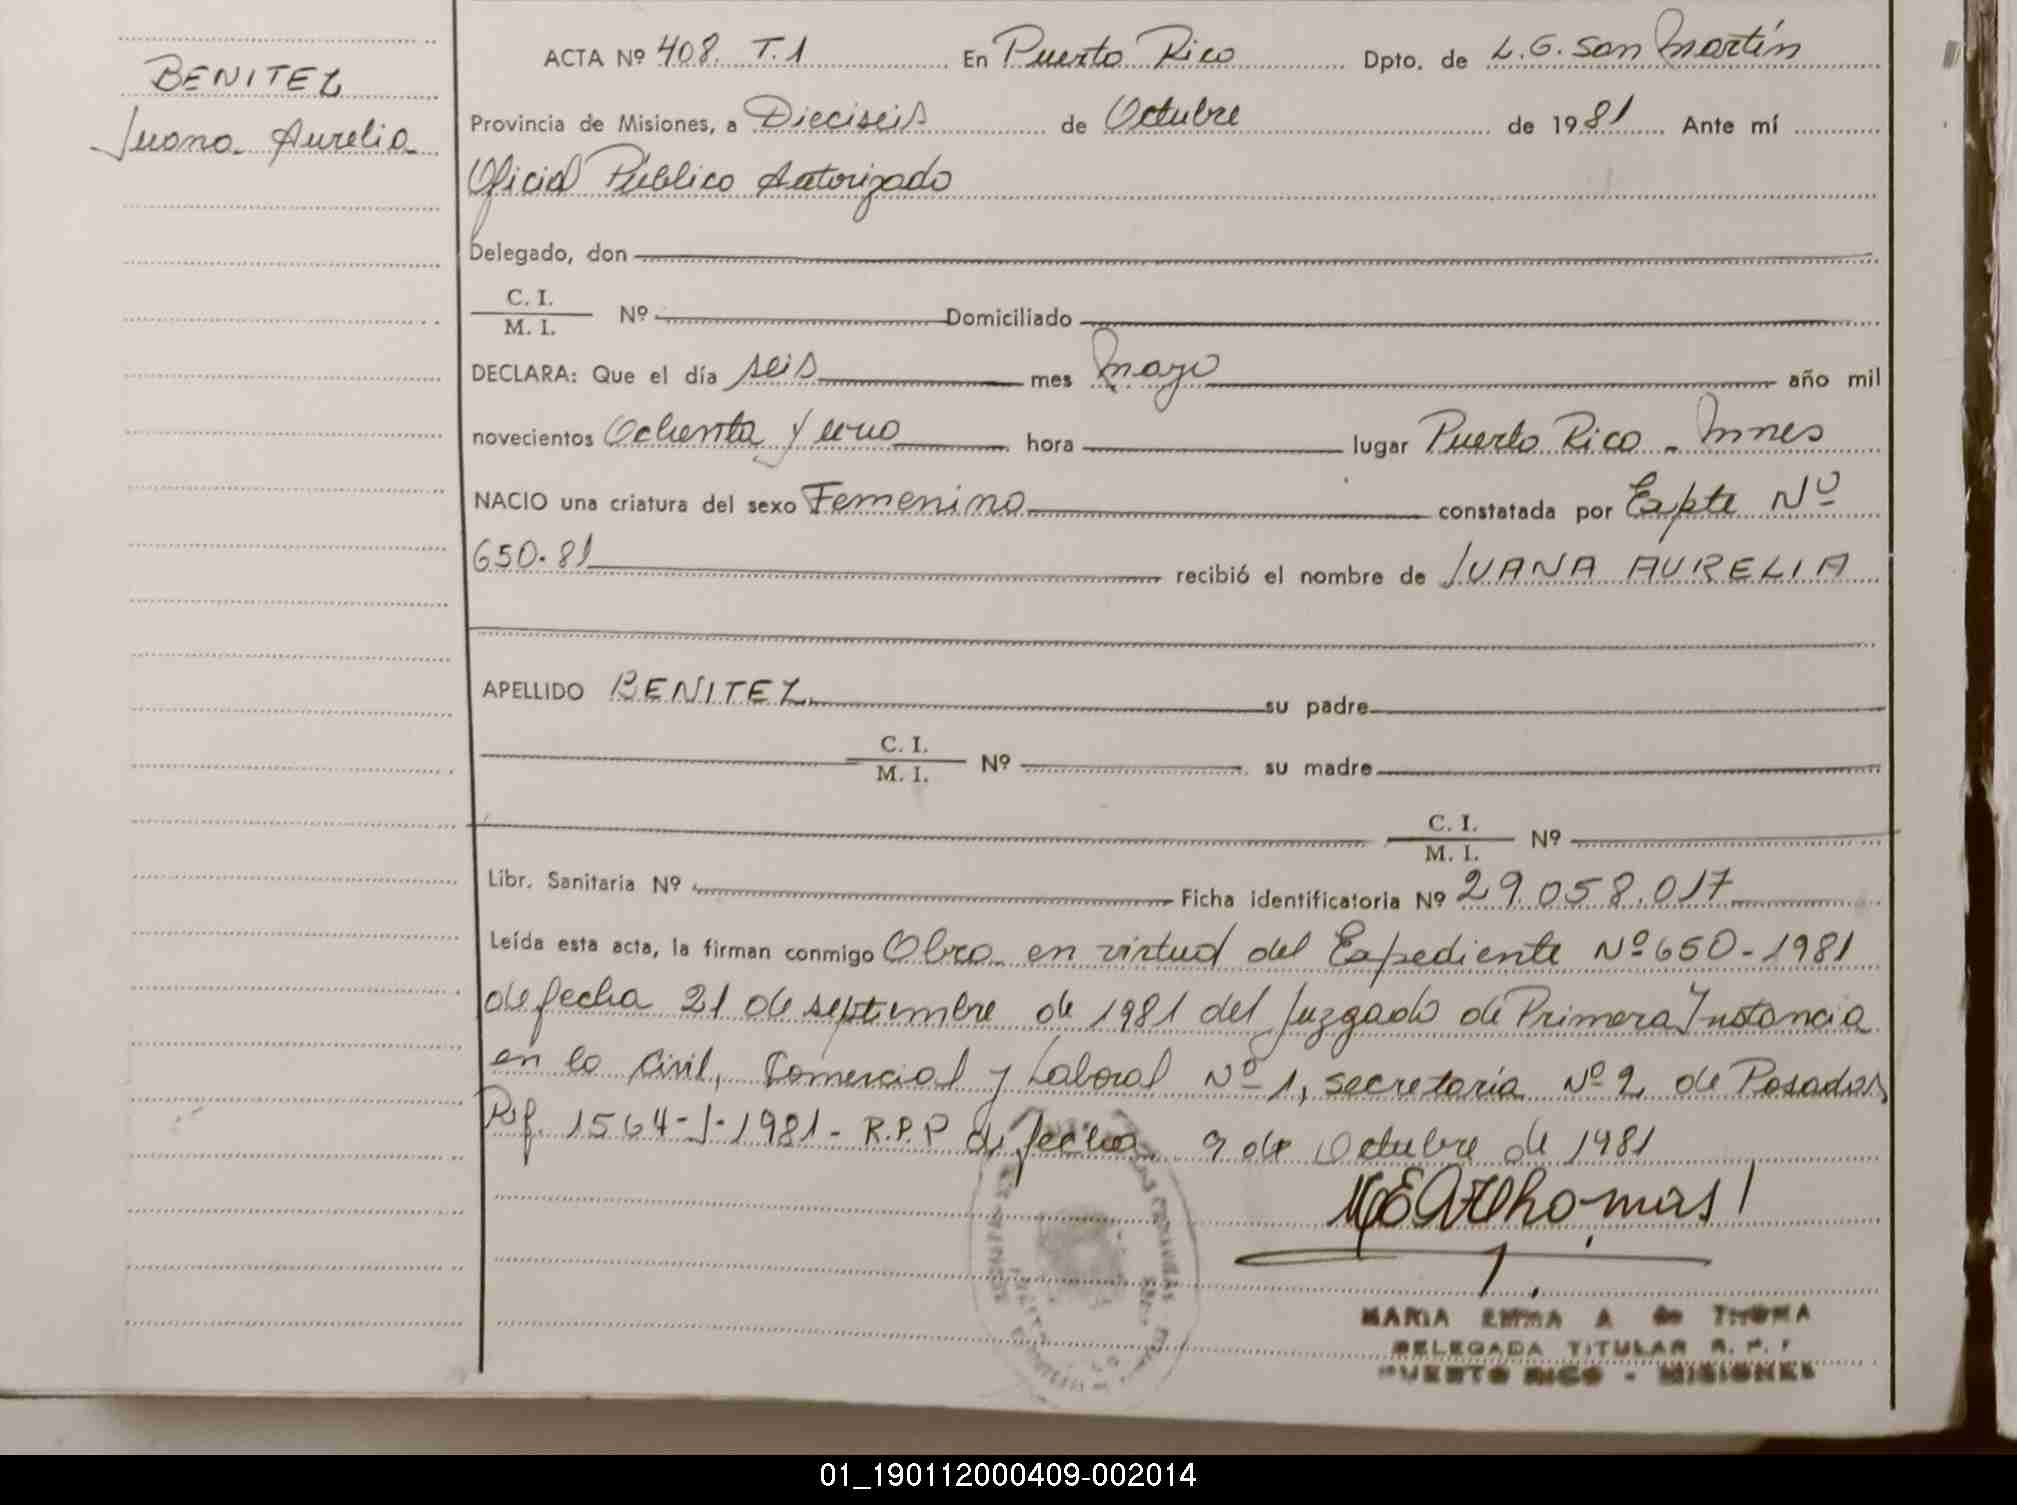 BENITEZ
Juana Aurelia
ACTA Nº 408. T.1 En Puerto Rico Dpto. de L. G. San Martín
Provincia de Misiones, a Dieciseis de Octubre de 1981 Ante mí
Oficial Público Autorizado
Delegado, don
C. I.
M. I. Nº Domiciliado
DECLARA: Que el día seis mes mayo año mil
novecientos Ochenta y uno hora lugar Puerto Rico - Mnes
NACIO una criatura del sexo Femenino constatada por Expte Nº
650-81 recibió el nombre de JUANA AURELIA
APELLIDO BENITEZ su padre
C. I.
M. I. Nº su madre
C. I.
M. I. Nº
Libr. Sanitaria Nº Ficha identificatoria Nº 29.058.017
Leída esta acta, la firman conmigo Obra en virtud del Expediente Nº 650-1981
de fecha 21 de septiembre de 1981 del Juzgado de Primera Instancia
en lo Civil, Comercial y Laboral Nº 1, secretaría Nº 2 de Posadas
Ref. 1564-J-1981- R.P.P de fecha 9 de Octubre de 1981
MARIA EMMA A de THOMA
DELEGADA TITULAR R. P. P
PUERTO RICO - MISIONES
01_190112000409-002014